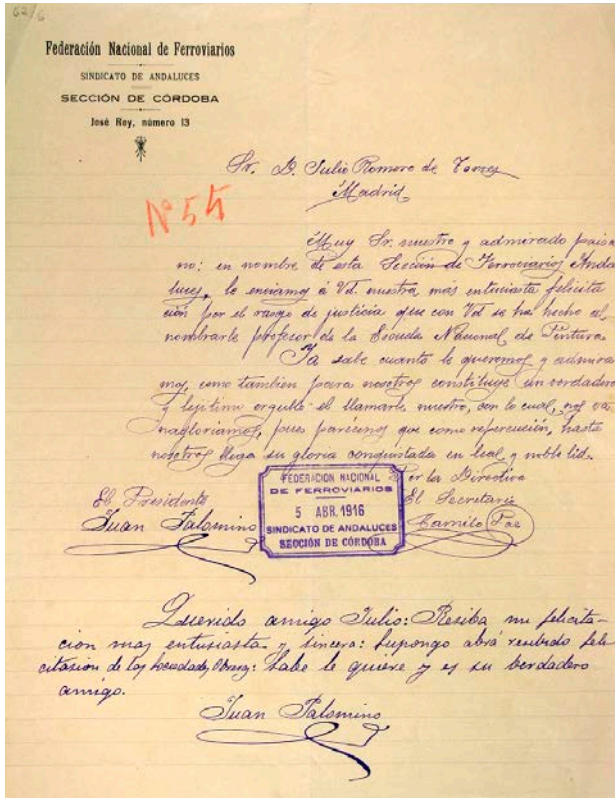 62/6
Federación Nacional de Ferroviarios
SINDICATO DE ANDALUCES
SECCIÓN DE CÓRDOBA
José Rey, número 13
Sr. D. Julio Romero de Torres
Madrid
Nº 54
Muy Sr. nuestro y admirado paisa
no: en nombre de esta Sección de Ferroviarios Anda
luces, le enviamos á Vd. nuestra más entusiasta felicita
ción por el rasgo de justicia que con Vd se ha hecho al
nombrarle profesor de la Escuela Nacional de Pintura.
Ya sabe cuanto le queremos y admira
mos, como tambien para nosotros constituye un verdadero
y lejitimo orgullo el llamarle nuestro, con lo cual, nos va
nagloriamos, pues parécenos que como repercución, hasta
nosotros llega su gloria conquistada en leal y noble lid.
Por la Directiva
El Presidente
El Secretario
Juan Palomino
Camilo
FEDERACION NACIONAL
DE FERROVIARIOS
5 ABR. 1916
SINDICATO DE ANDALUCES
SECCIÓN DE CÓRDOBA
Querido amigo Julio: Resiba mi felicita-
cion mas entusiasta y sincera: supongo abrá resibido feli
citasion de las Sociedades Obreras: Sabe le quiere y es su berdadero
amigo.
Juan Palomino